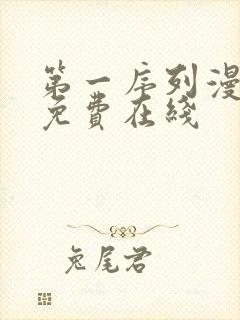 第一序列漫
免費在綫
兔尾君